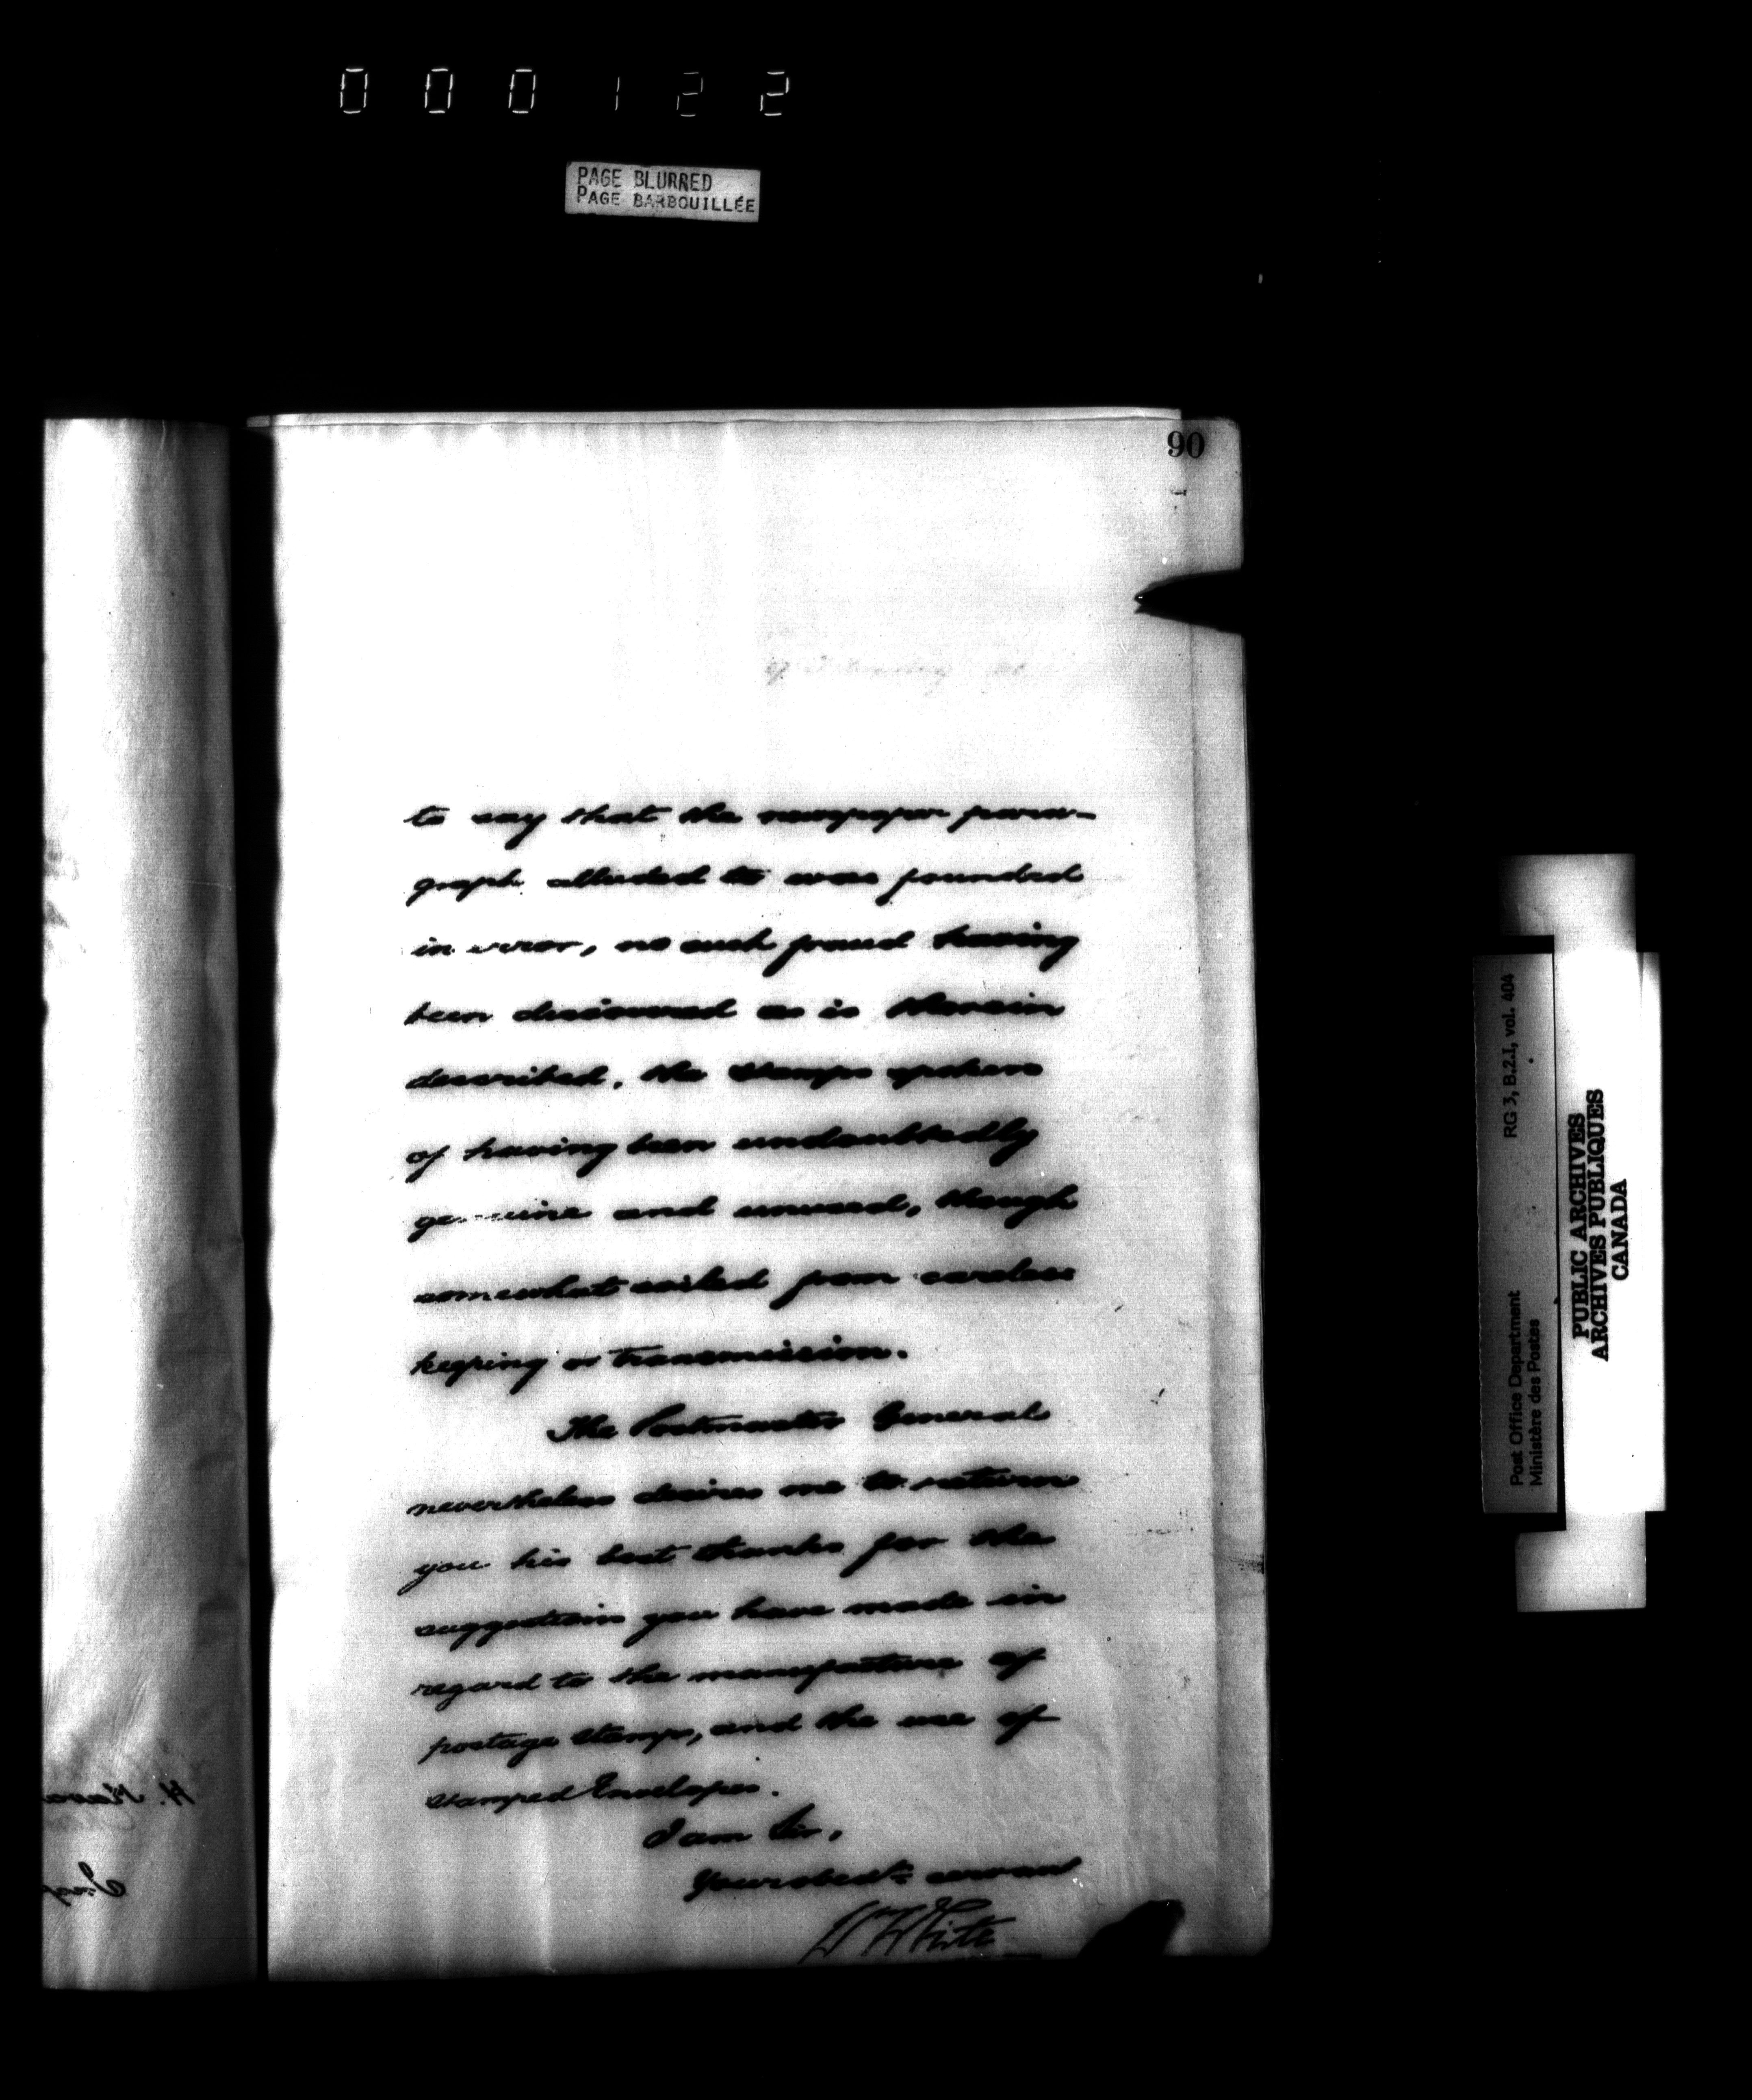 000122
PAGE BLURRED
PAGE BARBOUILLÉE
90
to say that the newspaper para-
graph alluded to was founded
in error, no such fraud having
been discovered as is therein
described, the stamps spoken
of having been undoubtedly
genuine and unused, though
somewhat soiled from careless
keeping or transmission.
The Postmaster General
nevertheless desires me to return
you his best thanks for the
suggestion you have made in
regard to the manufacture of
postage stamps, and the use of
stamped Envelopes.
I am Sir,
Your obedt. servant
White
Post Office Department RG 3, B.2.I, vol. 404
Ministère des Postes
PUBLIC ARCHIVES
ARCHIVES PUBLIQUES
CANADA